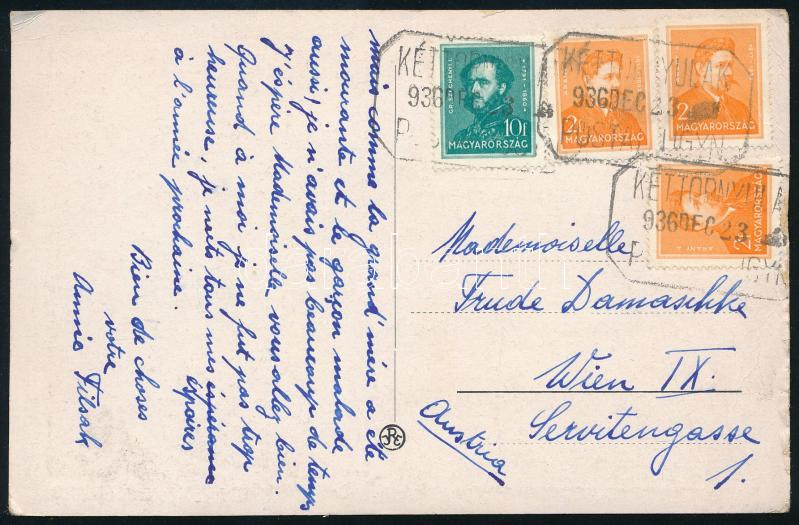 mais comme la grand'mère a été
mourante et le garçon malade
aussi, je n'avais pas beaucoup de temps
J'éspère Mademoiselle, vous allez bien.
Quand à moi je ne fut pas trop
heureuse, je mets tous mes
éspoires
à l'année prochaine.
Bien de choses
votre
Annie Filsak
KÉTTORNYULAK
936 DEC 23
KÉTTORNYULAK
936 DEC 23
KÉTTORNYULAK
936 DEC 23
GR. SZÉCHENYI I.
1791-1860
10f
MAGYARORSZÁG
2f
MAGYARORSZÁG
2f
MAGYARORSZÁG
ARANY J.
2f
MAGYARORSZÁG
Mademoiselle
Trude Damaschke
Wien IX.
Servitengasse
1.
Austria